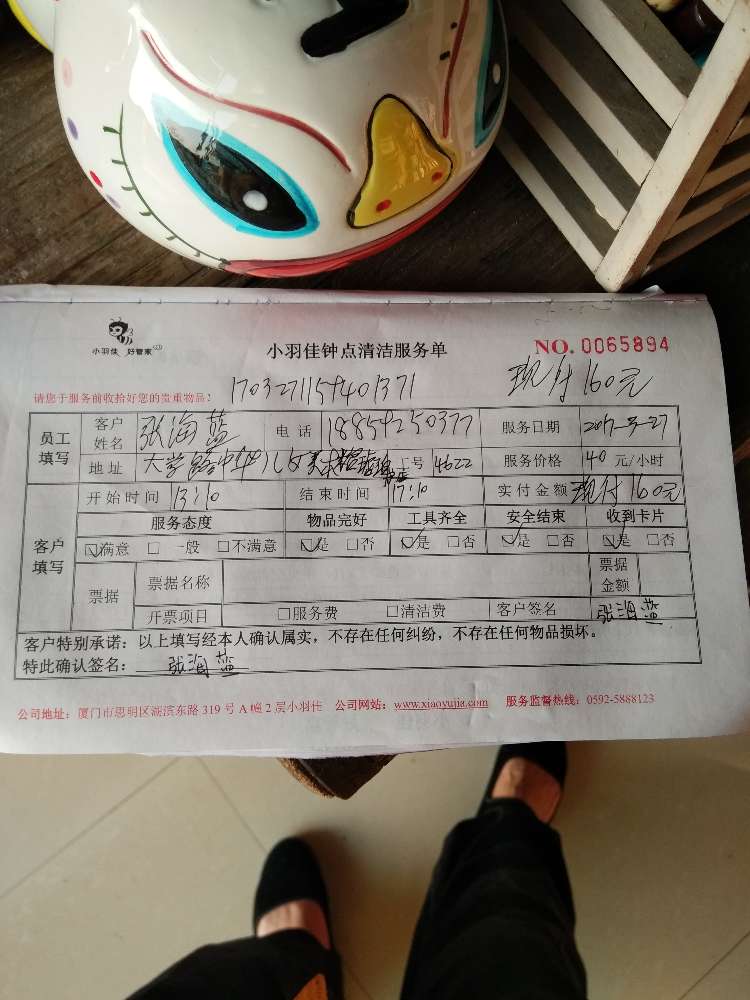 小羽佳 好管家
小羽佳钟点清洁服务单
NO. 0065894
请您于服务前收拾好您的贵重物品！
现付160元
员工填写 客户姓名 张海蓝 电话 18854250377 服务日期 2017-3-27
地址 大学路中华儿女美术馆 工号 4622 服务价格 40 元/小时
客户填写 开始时间 13:10 结束时间 17:10 实付金额 现付160元
服务态度 物品完好 工具齐全 安全结束 收到卡片
☑满意 □一般 □不满意 ☑是 □否 ☑是 □否 ☑是 □否 ☑是 □否
票据 票据名称 票据金额
开票项目 □服务费 □清洁费 客户签名 张海蓝
客户特别承诺：以上填写经本人确认属实，不存在任何纠纷，不存在任何物品损坏。
特此确认签名： 张海蓝
公司地址：厦门市思明区湖滨东路 319 号 A 幢 2 层小羽佳 公司网站：www.xiaoyujia.com 服务监督热线：0592-5888123